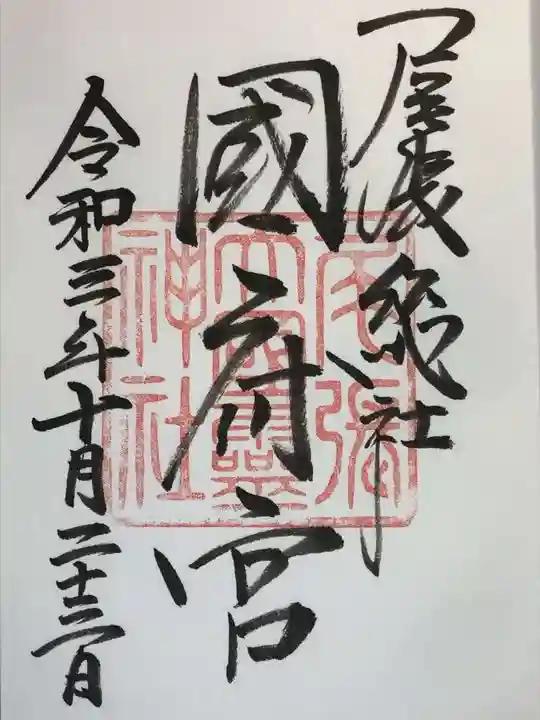 尾張總社
國府宮
令和三年十月二十三日
尾張
大國霊
神社